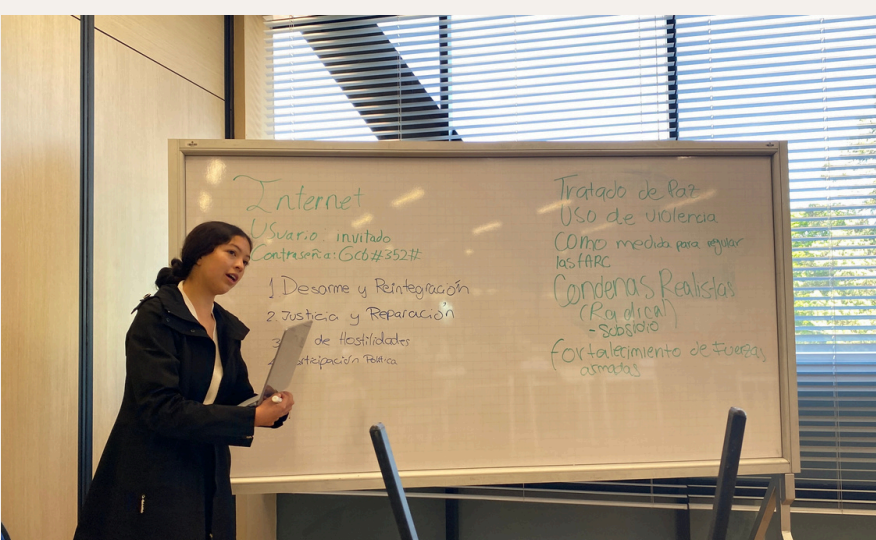 Internet
Usuario: invitado
Contraseña: Gcb#352#
1. Desarme y Reintegración
2. Justicia y Reparación
3 de Hostilidades
Política
Tratado de Paz
Uso de violencia
como medida para regular
las fARC
Condenas Realistas
(Radical)
- Subsidio
fortalecimiento de Fuerzas
armadas